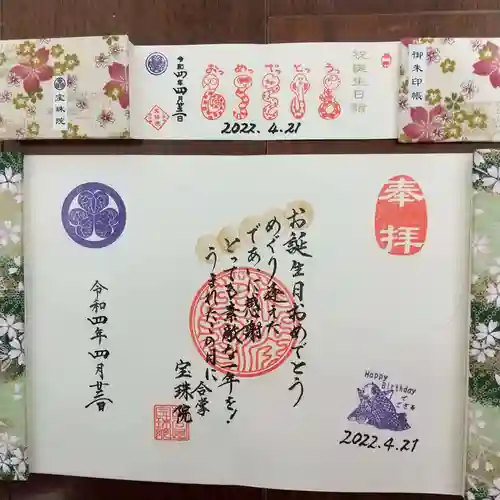 御朱印帳
祝誕生日詣
う
と
で
め
お
令和四年四月廿一日
2022.4.21
宝珠院
奉拝
お誕生日おめでとう
めぐり逢えた
であいに感謝
とっても素敵な一年を!
うまれたこの月に
合掌
宝珠院
令和四年四月廿一日
Happy
Birthday
で
ござる
2022.4.21